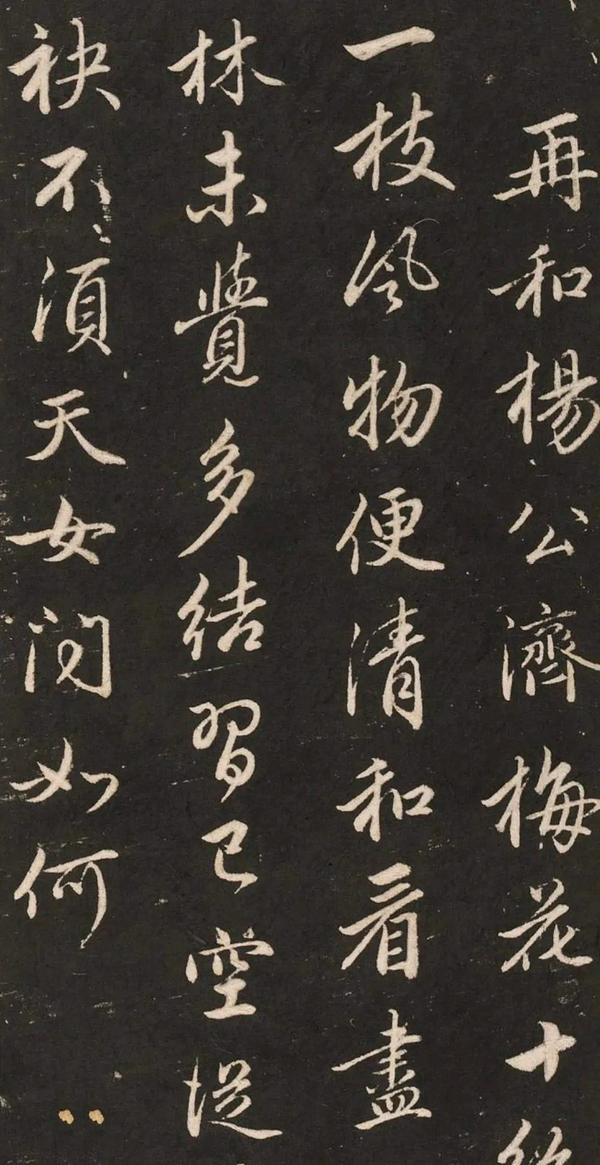 再和楊公濟梅花十絶
一枝風物便清和看盡
林未覺多結習已空從
袂不須天女問如何